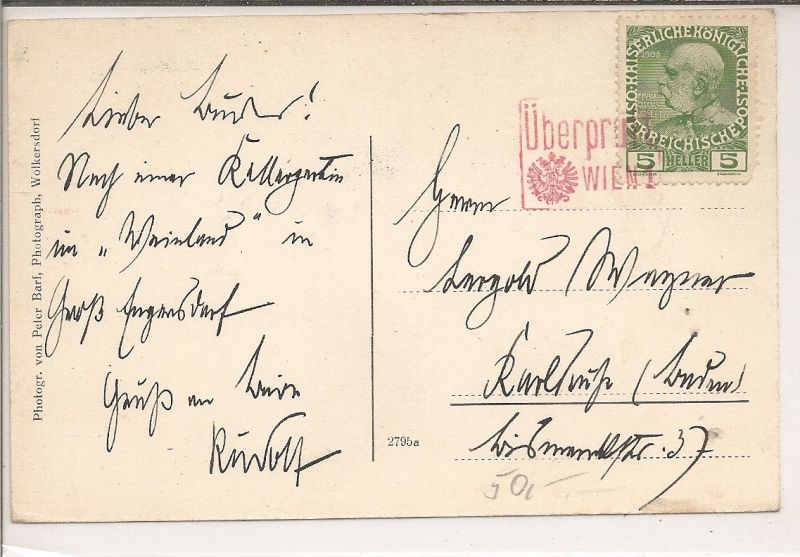 Lieber Bruder!
Nach einer Kellerpartie
im „Weinland" in
Groß Engersdorf
Gruß an
Rudolf
Photogr. von Peter Barf, Photograph, Wolkersdorf
2795a
KAISERLICHE KÖNIGLICHE ÖSTERREICHISCHE POST
1908
5 HELLER 5
Überprüft
WIEN 1
Herrn
Leopold Wagner
Karlsruhe (Baden)
Bismarckstr. 37
50